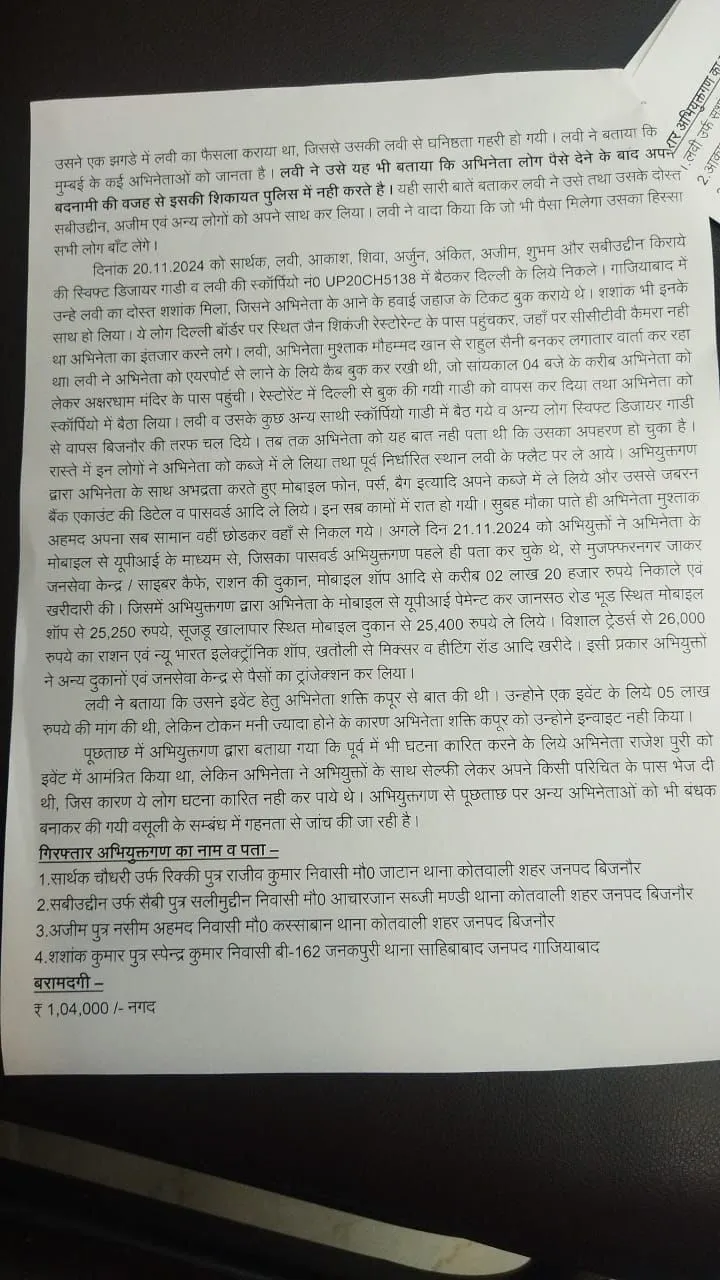 उसने एक झगडे में लवी का फैसला कराया था, जिससे उसकी लवी से घनिष्ठता गहरी हो गयी। लवी ने बताया कि
मुम्बई के कई अभिनेताओं को जानता है। लवी ने उसे यह भी बताया कि अभिनेता लोग पैसे देने के बाद अपने
बदनामी की वजह से इसकी शिकायत पुलिस में नही करते है। यही सारी बातें बताकर लवी ने उसे तथा उसके दोस्त
सबीउद्दीन, अजीम एवं अन्य लोगों को अपने साथ कर लिया। लवी ने वादा किया कि जो भी पैसा मिलेगा उसका हिस्सा
सभी लोग बाँट लेंगे।
दिनांक 20.11.2024 को सार्थक, लवी, आकाश, शिवा, अर्जुन, अंकित, अजीम, शुभम और सबीउद्दीन किराये
की स्विफ्ट डिजायर गाडी व लवी की स्कॉर्पियो नं0 UP20CH5138 में बैठकर दिल्ली के लिये निकले। गाजियाबाद में
उन्हे लवी का दोस्त शशांक मिला, जिसने अभिनेता के आने के हवाई जहाज के टिकट बुक कराये थे। शशांक भी इनके
साथ हो लिया। ये लोग दिल्ली बॉर्डर पर स्थित जैन शिकंजी रेस्टोरेन्ट के पास पहुंचकर, जहाँ पर सीसीटीवी कैमरा नही
था अभिनेता का इंतजार करने लगे। लवी, अभिनेता मुश्ताक मौहम्मद खान से राहुल सैनी बनकर लगातार वार्ता कर रहा
था। लवी ने अभिनेता को एयरपोर्ट से लाने के लिये कैब बुक कर रखी थी, जो सांयकाल 04 बजे के करीब अभिनेता को
लेकर अक्षरधाम मंदिर के पास पहुंची। रेस्टोरेंट में दिल्ली से बुक की गयी गाडी को वापस कर दिया तथा अभिनेता को
स्कॉर्पियो में बैठा लिया। लवी व उसके कुछ अन्य साथी स्कॉर्पियो गाडी में बैठ गये व अन्य लोग स्विफ्ट डिजायर गाडी
से वापस बिजनौर की तरफ चल दिये। तब तक अभिनेता को यह बात नही पता थी कि उसका अपहरण हो चुका है।
रास्ते में इन लोगों ने अभिनेता को कब्जे में ले लिया तथा पूर्व निर्धारित स्थान लवी के फ्लैट पर ले आये। अभियुक्तगण
द्वारा अभिनेता के साथ अभद्रता करते हुए मोबाइल फोन, पर्स, बैग इत्यादि अपने कब्जे में ले लिये और उससे जबरन
बैंक एकाउंट की डिटेल व पासवर्ड आदि ले लिये। इन सब कामों में रात हो गयी। सुबह मौका पाते ही अभिनेता मुश्ताक
अहमद अपना सब सामान वहीं छोडकर वहाँ से निकल गये। अगले दिन 21.11.2024 को अभियुक्तों ने अभिनेता के
मोबाइल से यूपीआई के माध्यम से, जिसका पासवर्ड अभियुक्तगण पहले ही पता कर चुके थे, से मुजफ्फरनगर जाकर
जनसेवा केन्द्र / साइबर कैफे, राशन की दुकान, मोबाइल शॉप आदि से करीब 02 लाख 20 हजार रुपये निकाले एवं
खरीदारी की। जिसमें अभियुक्तगण द्वारा अभिनेता के मोबाइल से यूपीआई पेमेन्ट कर जानसठ रोड भूड स्थित मोबाइल
शॉप से 25,250 रुपये, सूजडू खालापार स्थित मोबाइल दुकान से 25,400 रुपये ले लिये। विशाल ट्रेडर्स से 26,000
रुपये का राशन एवं न्यू भारत इलेक्ट्रॉनिक शॉप, खतौली से मिक्सर व हीटिंग रॉड आदि खरीदे। इसी प्रकार अभियुक्तों
ने अन्य दुकानों एवं जनसेवा केन्द्र से पैसों का ट्रांजेक्शन कर लिया।
लवी ने बताया कि उसने इवेंट हेतु अभिनेता शक्ति कपूर से बात की थी। उन्होने एक इवेंट के लिये 05 लाख
रुपये की मांग की थी, लेकिन टोकन मनी ज्यादा होने के कारण अभिनेता शक्ति कपूर को उन्होने इन्वाइट नही किया।
पूछताछ में अभियुक्तगण द्वारा बताया गया कि पूर्व में भी घटना कारित करने के लिये अभिनेता राजेश पुरी को
इवेंट में आमंत्रित किया था, लेकिन अभिनेता ने अभियुक्तों के साथ सेल्फी लेकर अपने किसी परिचित के पास भेज दी
थी, जिस कारण ये लोग घटना कारित नही कर पाये थे। अभियुक्तगण से पूछताछ पर अन्य अभिनेताओं को भी बंधक
बनाकर की गयी वसूली के सम्बंध में गहनता से जांच की जा रही है।
गिरफ्तार अभियुक्तगण का नाम व पता –
1.सार्थक चौधरी उर्फ रिक्की पुत्र राजीव कुमार निवासी मौ0 जाटान थाना कोतवाली शहर जनपद बिजनौर
2.सबीउद्दीन उर्फ सैबी पुत्र सलीमुद्दीन निवासी मौ0 आचारजान सब्जी मण्डी थाना कोतवाली शहर जनपद बिजनौर
3.अजीम पुत्र नसीम अहमद निवासी मौ0 कस्साबान थाना कोतवाली शहर जनपद बिजनौर
4.शशांक कुमार पुत्र स्पेन्द्र कुमार निवासी बी-162 जनकपुरी थाना साहिबाबाद जनपद गाजियाबाद
बरामदगी –
₹ 1,04,000 /- नगद
अभियुक्तगण का
लवी उर्फ